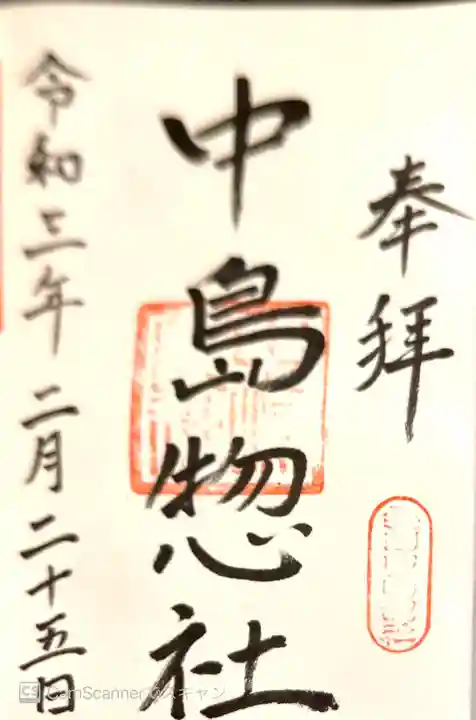 奉拝
中島惣社
令和三年二月二十五日
CS CamScannerでスキャン